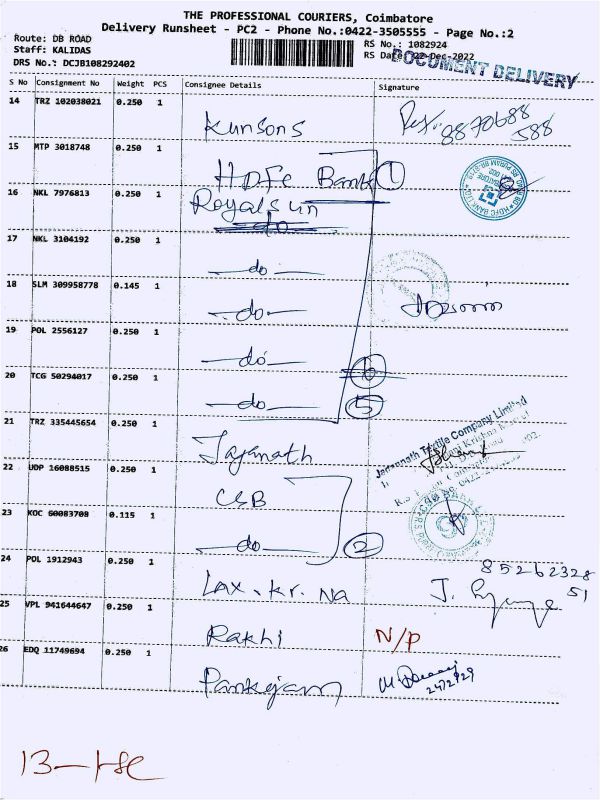 THE PROFESSIONAL COURIERS, Coimbatore
Delivery Runsheet - PC2 - Phone No.:0422-3505555 - Page No.:2
Route: DB ROAD
Staff: KALIDAS
DRS No.: DCJB108292402
RS No.: 1082924
RS Date: 22-Dec-2022
DOCUMENT DELIVERY
S No Consignment No Weight PCS Consignee Details Signature
14 TRZ 102038021 0.250 1
Kunsons
8870688
588
15 MTP 3018748 0.250 1
HDFC Bank 1
16 NKL 7976813 0.250 1
Royalsun
do
17 NKL 3104192 0.250 1
do
18 SLM 309958778 0.145 1
do
19 POL 2556127 0.250 1
do
6
20 TCG 50294017 0.250 1
do 5
21 TRZ 335445654 0.250 1
Jaganath
Jagannath Textile Company Limited
22 UDP 16088515 0.250 1
CSB
23 KOC 60083708 0.115 1
do 2
24 POL 1912943 0.250 1
Lax. kr. Na
85262328
51
25 VPL 941644647 0.250 1
Rakhi
N/P
26 EDQ 11749694 0.250 1
Pankajam